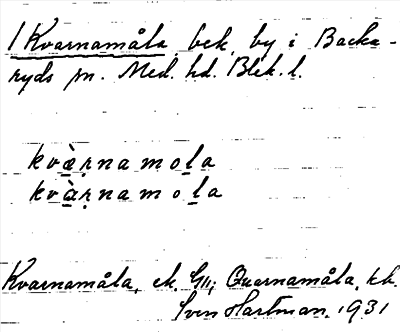 1 Kvarnamåla, bek. by i Backa-
ryds sn. Med. hd. Blek. l.
kvæ̀ṛnamoḻa
kvàṛnamoḻa
Kvarnamåla, ek. G11; Quarnamåla, kk.
Sven Hartman, 1931